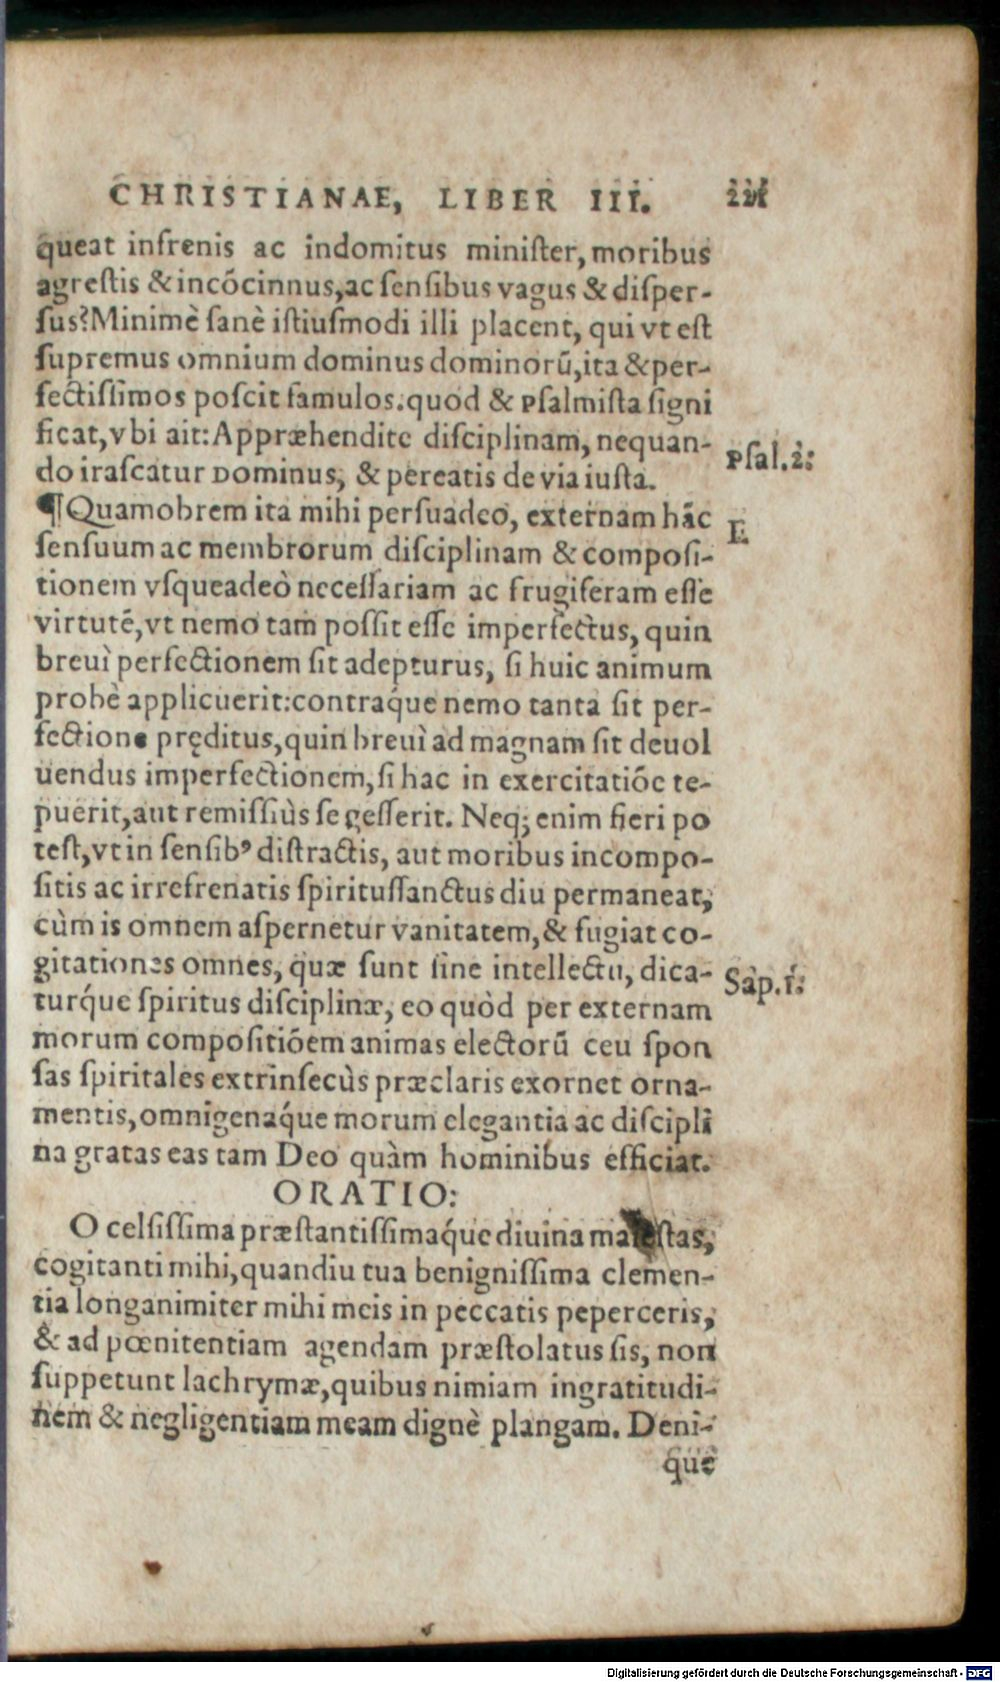 CHRISTIANAE, LIBER III.
queat infrenis ac indomitus miniſter, moribus
agreſtis & incōcinnus, ac ſenſibus vagus & diſper-
ſus? Minimè ſanè iſtiuſmodi illi placent, qui vt eſt
ſupremus omnium dominus dominorū, ita & per-
fectiſſimos poſcit famulos. quod & Pſalmiſta ſigni
ficat, vbi ait: Appræhendite diſciplinam, nequan-
do iraſcatur Dominus, & pereatis de via iuſta.
Pſal. 2:
¶ Quamobrem ita mihi perſuadeo, externam hāc
E
ſenſuum ac membrorum diſciplinam & compoſi-
tionem vſqueadeò neceſſariam ac frugiferam eſſe
virtutē, vt nemo tam poſſit eſſe imperfectus, quin
breuì perfectionem ſit adepturus, ſi huic animum
probè applicuerit: contraq́ue nemo tanta ſit per-
fectione pręditus, quin breuì ad magnam ſit deuol
uendus imperfectionem, ſi hac in exercitatiōe te-
puerit, aut remiſſiùs ſe geſſerit. Neq; enim fieri po
teſt, vt in ſenſibꝰ diſtractis, aut moribus incompo-
ſitis ac irrefrenatis ſpirituſſanctus diu permaneat,
cùm is omnem aſpernetur vanitatem, & fugiat co-
gitationes omnes, quæ ſunt ſine intellectu, dica-
Sap. 1:
turq́ue ſpiritus diſciplinæ, eo quòd per externam
morum compoſitiōem animas electorū ceu ſpon
ſas ſpiritales extrinſecùs præclaris exornet orna-
mentis, omnigenaq́ue morum elegantia ac diſcipli
na gratas eas tam Deo quàm hominibus efficiat.
ORATIO:
O celſiſſima præſtantiſſimaq́ue diuina maieſtas,
cogitanti mihi, quandiu tua benigniſſima clemen-
tia longanimiter mihi meis in peccatis peperceris,
& ad pœnitentiam agendam præſtolatus ſis, non
ſuppetunt lachrymæ, quibus nimiam ingratitudi-
nem & negligentiam meam dignè plangam. Deni-
que
Digitalisierung gefördert durch die Deutsche Forschungsgemeinschaft - DFG